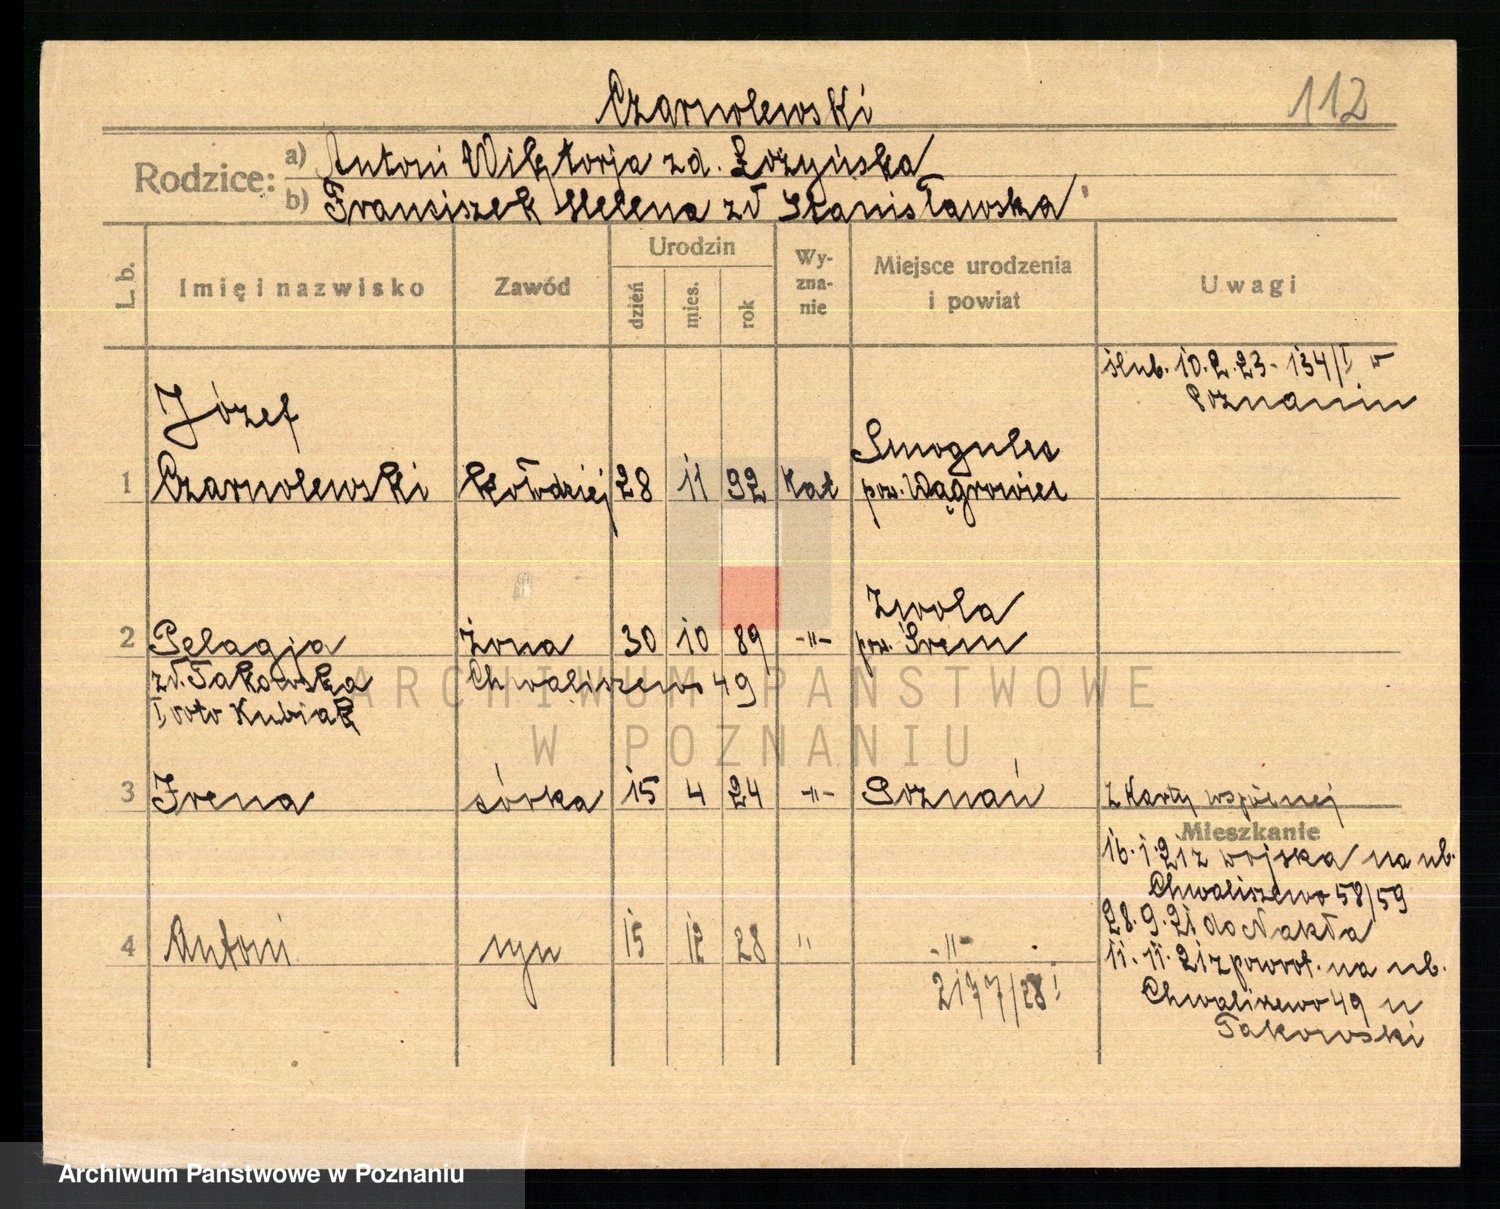 112
Czarnolewski
Rodzice:
a) Antoni Wiktorja zd. Łożyńska
b) Franciszek Helena zd Stanisławska
L. b.
Imię i nazwisko
Zawód
Urodzin
dzień
mies.
rok
Wy-
zna-
nie
Miejsce urodzenia
i powiat
Uwagi
ślub. 10.2.23 - 134/I w
Poznaniu
Józef
1 Czarnolewski kołodziej 28 11 92 Kat
Smogulec
pow. Wągrowiec
Zwola
2 Pelagja żona 30 10 89 -"- pow. Śrem
zd. Takowska Chwaliszewo 49
I voto Kubiak
3 Irena córka 15 4 24 -"- Poznań z Karty wspólnej
Mieszkanie
16.1.21 z wojska na ub.
Chwaliszewo 58/59
28.9.21 do Nakła
11.11.21 z powrot. na ub.
Chwaliszewo 49 u
Takowski
4 Antoni syn 15 12 28 " -"-
2177/28 I
ARCHIWUM PAŃSTWOWE
W POZNANIU
Archiwum Państwowe w Poznaniu